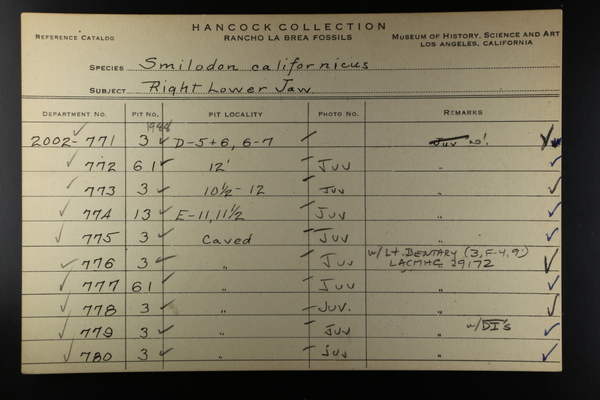 HANCOCK COLLECTION
REFERENCE CATALOG RANCHO LA BREA FOSSILS MUSEUM OF HISTORY, SCIENCE AND ART
LOS ANGELES, CALIFORNIA
SPECIES Smilodon californicus
SUBJECT Right Lower Jaw
DEPARTMENT NO. PIT NO. PIT LOCALITY PHOTO NO. REMARKS
2002-771 3 1988 D-5+6, 6-7 Juv no!
772 61 12' Juv "
773 3 10½-12 Juv "
774 13 E-11, 11½ Juv "
775 3 Caved Juv "
776 3 " Juv w/Lt. DENTARY (3, F-4, 9')
LACMHC 29172
777 61 " Juv "
778 3 " Juv. "
779 3 " Juv " w/DI's
780 3 " Juv "